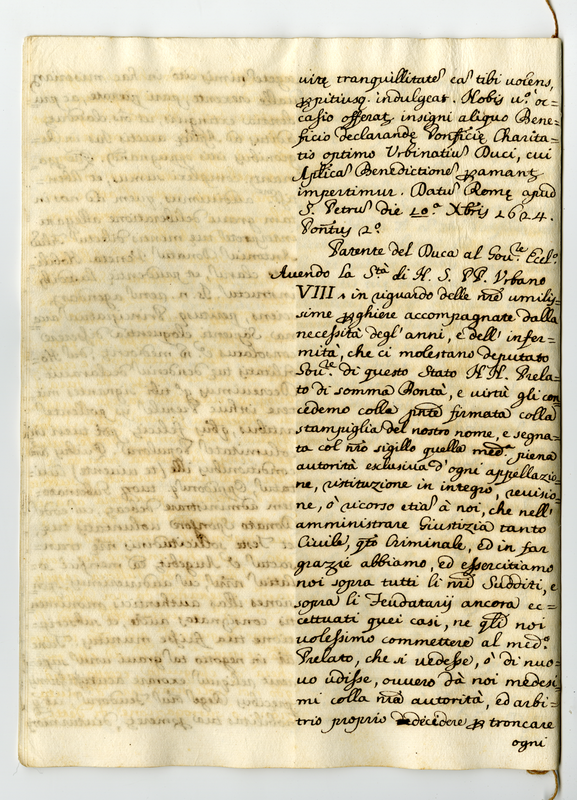 uitę tranquillitatē eā tibi uolens,
ꝓpitiusq. indulgeat. Nobis u.º oc=
casio offerat, insigni aliquo Bene=
ficio declarandę Pontificię Charita=
tis optimo Urbinatiū Duci, cui
Aplicā Benedictionē ꝑamanť
impertimur. Datū Romę apud
S. Petrū die 10.ª Xbris 1624.
Pontūs 2.º
Patente del Duca al Gou.re Eccl.º
Auendo la S.tà di N. S. PP. Urbano
VIII, in riguardo delle nr̄e umilis=
sime ꝓghiere accompagnate dalla
necessità degl' anni, e dell' infer=
mità, che ci molestano deputato
Gou.re di questo Stato N.N. Prela=
to di somma Bontà, e uirtù gli con
cedemo colla pn̄te firmata colla
stampiglia del nostro nome, e segna=
ta col nr̄o sigillo quella med.ª piena
autorità exclusiua d'ogni appellazio=
ne, ristituzione in integrō, reuisio=
ne, ò ricorso etiā à noi, che nell'
amministrare Giustizia tanto
Ciuile, qto Criminale, ed in far
grazie abbiamo, ed essercitiamo
noi sopra tutti li nr̄i Sudditi, e
sopra li Feudatarij ancora ec=
cettuati quei casi, ne q̄li noi
uolessimo commettere al med.º
Prelato, che si uedesse, ò di nuo=
uo udisse, ouuero dà noi medesi
mi colla nr̄a autorità, ed arbi=
trio proprio decidere ꝑ troncare
ogni